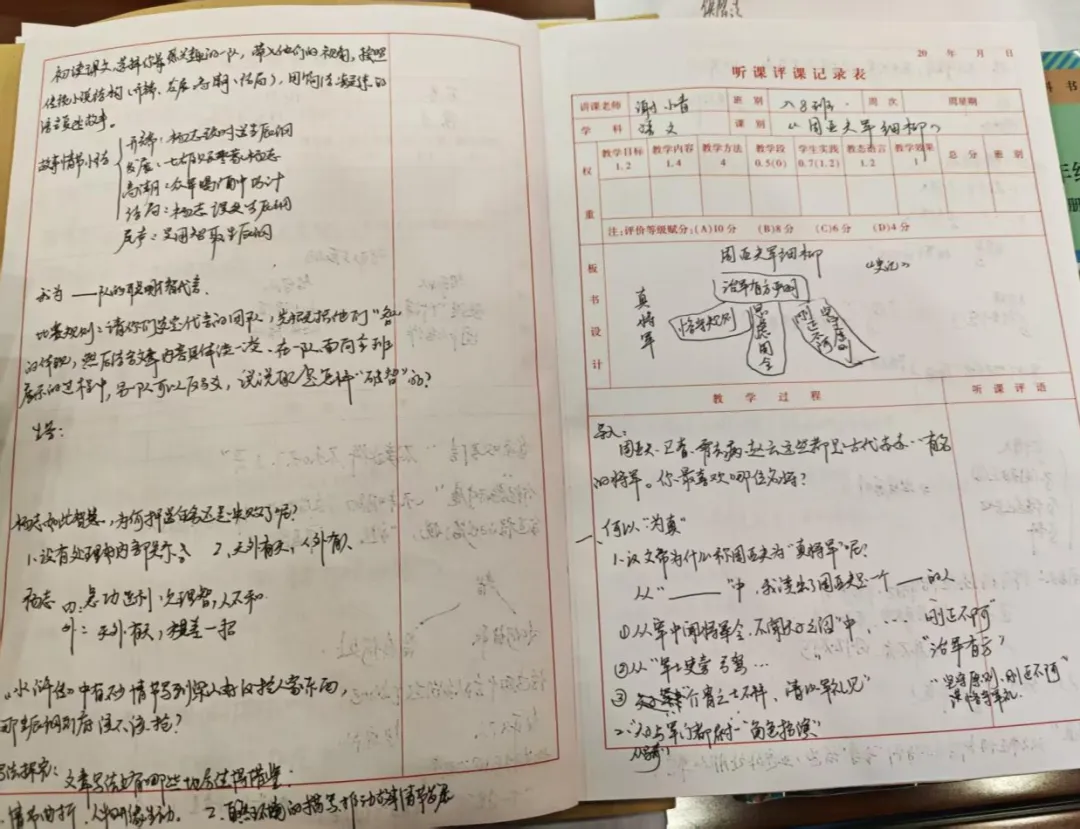 初读课文,选择你最感兴趣的一队,带入他们的视角,按照
传统小说结构(开端、发展、高潮、结局),用简洁凝练的
语言复述故事。
故事情节小结
开端:杨志
发展:
高潮:众军喝酒中巧计
结局:杨志误失生辰纲
尾声:吴用智取生辰纲
我为——队的聪明才智代言。
比赛规则:请你们选定代言的团队,先概括他们“智”
的体现,然后结合文章内容具体说一说。在一队面向全班
展示的过程中,另一队可以反驳,说说
生号:
杨志如此智慧,为何押送任务还是失败了呢?
1、没有处理好内部矛盾 2、天外有天,人外有人
杨志 内:急功近利,失理智,人不和
外:天外有天,技差一招
《水浒传》中有不少情节写到梁山好汉抢人家东西,
那生辰纲到底该不该抢?
写法探究:文章写法上有哪些地方值得借鉴:
情节曲折,人物形象生动。 2、自然环境的描写推动故事情节发展
20 年 月 日
听课评课记录表
讲课老师 谢小青 班别 八8班 周次 周星期
学科 语文 课别 《周亚夫军细柳》
权重
教学目标 1.2 教学内容 1.4 教学方法 4 教学段 0.5(0) 学生实践 0.7(1.2) 教态语言 1.2 教学效果 1 总分 班别
注:评价等级赋分:(A)10分 (B)8分 (C)6分 (D)4分
板书设计
周亚夫军细柳 《史记》
真将军
治军有方严明
恪守规则
思虑周全
刚正不阿
坚守原则
教学过程 听课评语
导入:
周亚夫、卫青、霍去病、赵云这些都是古代赫赫有名
的将军。你最喜欢哪位名将?
一、何以“为真”
1、汉文帝为什么称周亚夫为“真将军”呢?
从“______”中,我读出了周亚夫是一个——的人
①从“军中闻将军令,不闻天子之诏”中,…… 刚正不阿”
②从“军士吏 弓弩… ” “治军有方”
③ “介胄之士不拜,请以军礼见” “坚守原则、刚正不阿”
2、“ 军门都尉”“角色扮演”